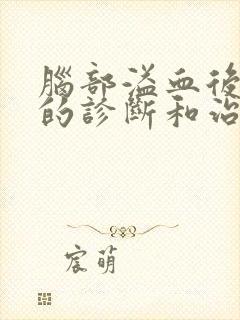 腦部溢血後
的診斷和治
宸萌